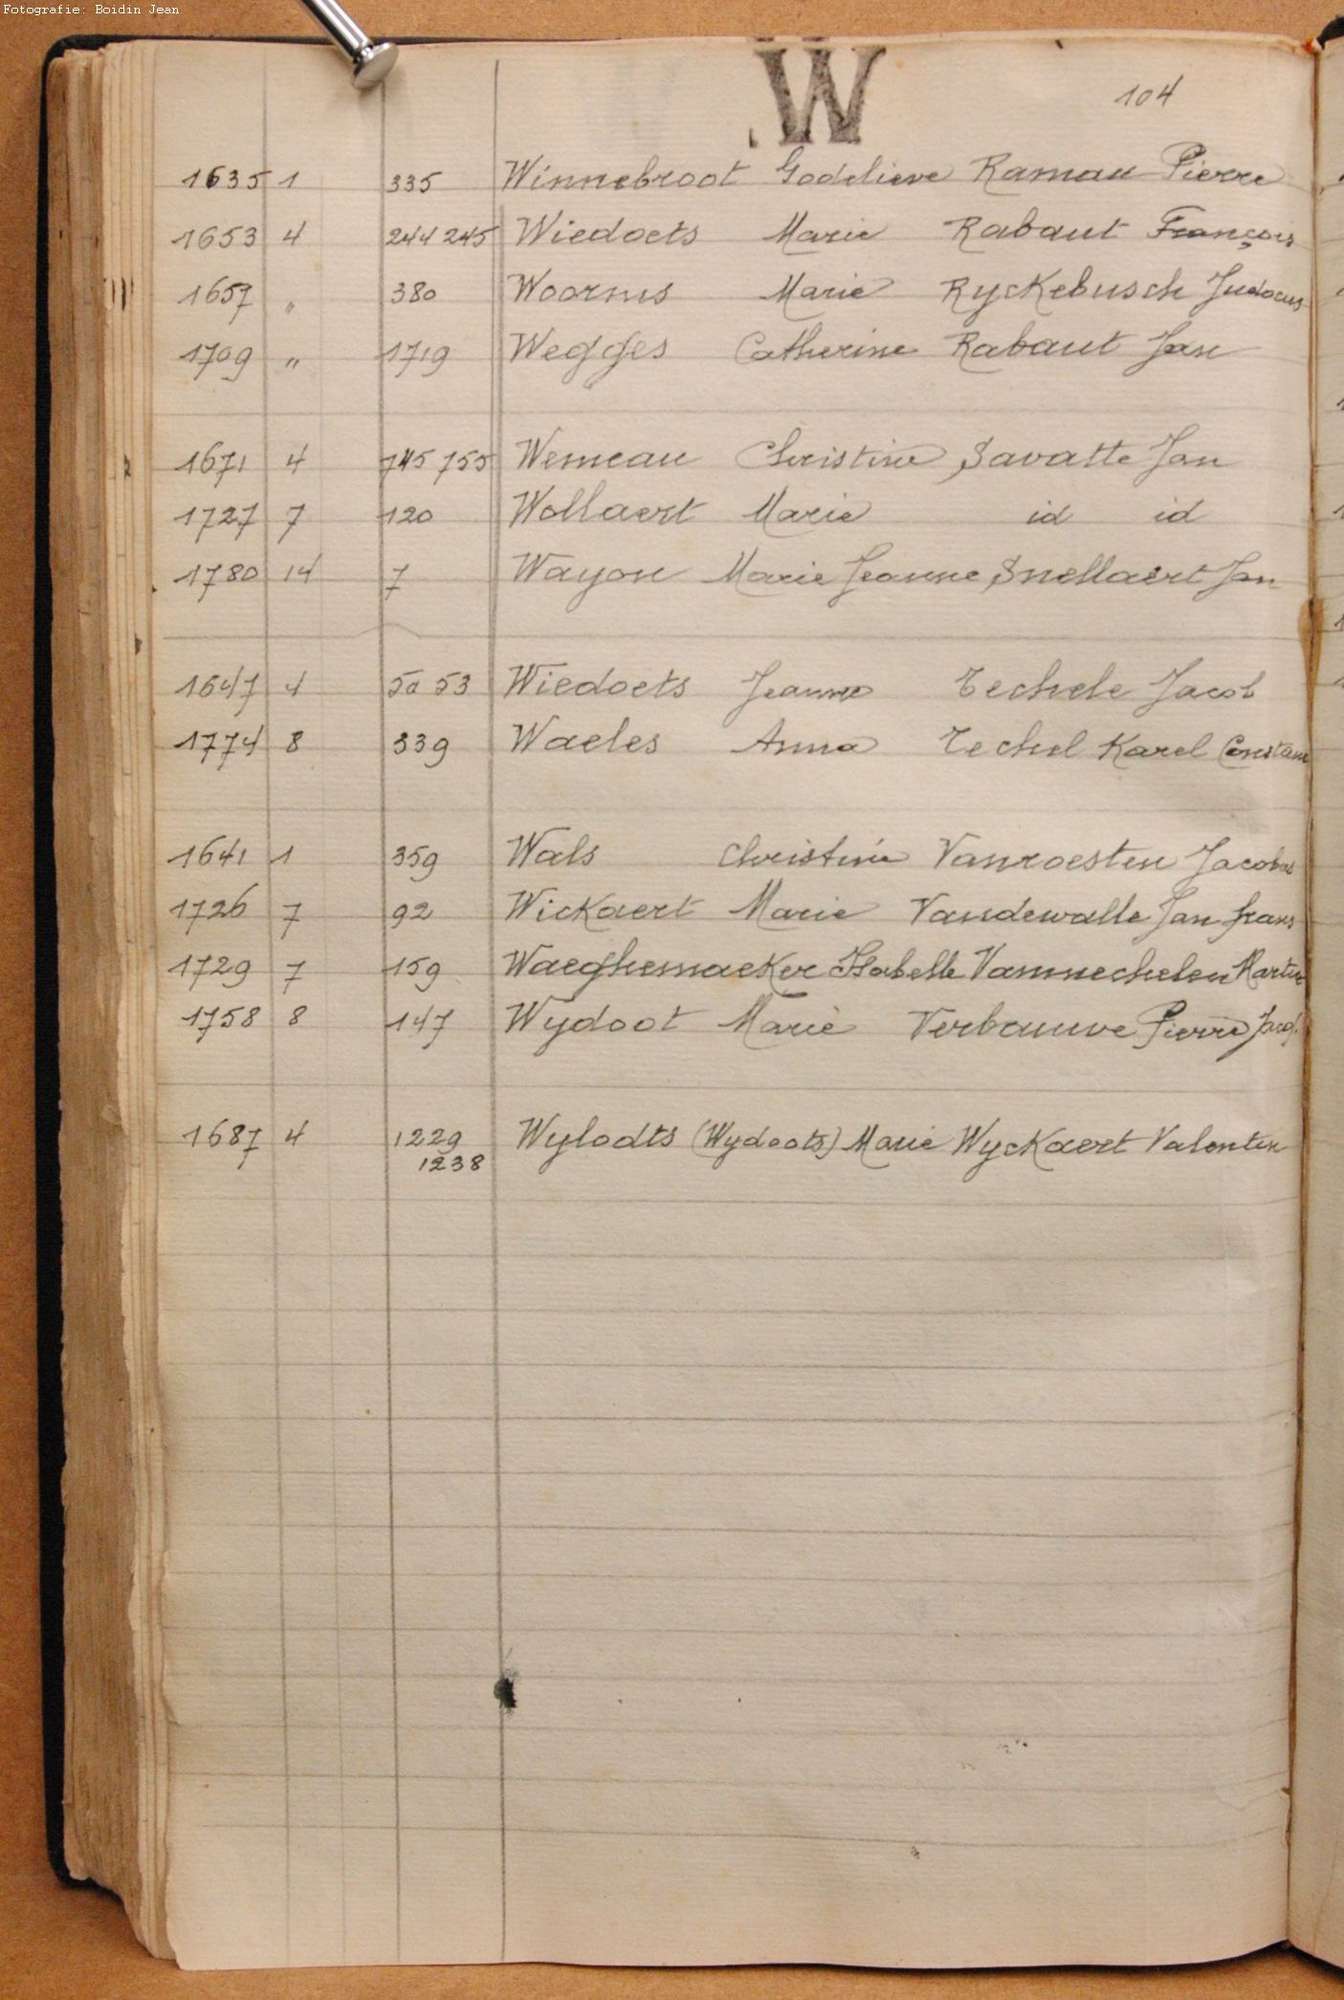 Fotografie: Boidin Jean
W
104
1635 1 335 Winnebroot Godelieve Ramau Pierre
1653 4 244 245 Wiedoets Marie Rabaut François
1657 " 380 Wooms Marie Ryckebusch Judocus
1709 " 1719 Wegges Catherine Rabaut Jan
1671 4 745 755 Wemeau Christine Savatte Jan
1727 7 120 Wollaert Marie id id
1780 14 7 Wayon Marie Jeanne Snellaert Jan
1647 4 53 Wiedoets Jeanne Techele Jacob
1774 8 339 Waeles Anna Techel Karel Constant
1641 1 359 Wals Christine Vanroesten Jacobus
1726 7 92 Wickaert Marie Vandewalle Jan frans
1729 7 159 Waeghemaeker Isabelle Vannechelen Martin
1758 8 147 Wydoot Marie Verbauwe Pierre Jacq.
1687 4 1229 Wylodts (Wydoots) Marie Wyckaert Valentin
1238